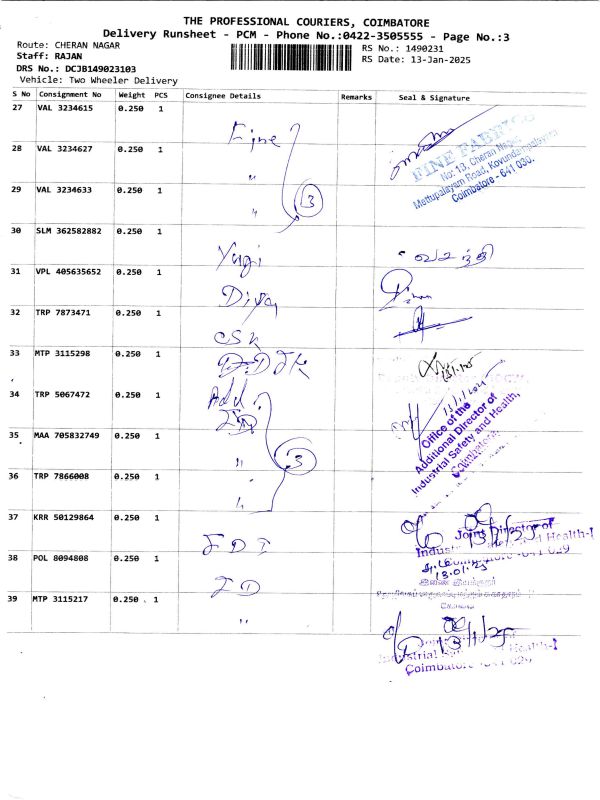 THE PROFESSIONAL COURIERS, COIMBATORE
Delivery Runsheet - PCM - Phone No.:0422-3505555 - Page No.:3
Route: CHERAN NAGAR
RS No.: 1490231
Staff: RAJAN
RS Date: 13-Jan-2025
DRS No.: DCJB149023103
Vehicle: Two Wheeler Delivery
S No Consignment No Weight PCS Consignee Details Remarks Seal & Signature
27 VAL 3234615 0.250 1 Fine
FINE FABRICS
No: 13, Cheran Nagar,
Mettupalayam Road, Kovundampalayam
Coimbatore - 641 030.
28 VAL 3234627 0.250 1 "
29 VAL 3234633 0.250 1 " 3
30 SLM 362582882 0.250 1 Yugi வசந்தி
31 VPL 405635652 0.250 1 Divya
32 TRP 7873471 0.250 1 CSK
33 MTP 3115298 0.250 1
34 TRP 5067472 0.250 1 Add.
13/1/2025
Office of the
Additional Director of
Industrial Safety and Health,
Coimbatore
35 MAA 705832749 0.250 1 " 3
36 TRP 7866008 0.250 1 "
37 KRR 50129864 0.250 1
13/1/25
Joint Director of
Industrial Safety and Health-I
Coimbatore -641 029
38 POL 8094808 0.250 1 ID
13.01.25
இணை இயக்குநர்
கோவை
39 MTP 3115217 0.250 1 "
13/1/25
Industrial Health-I
Coimbatore -641 029